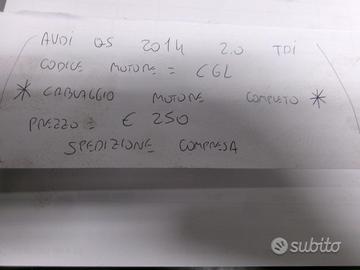 AUDI Q5 2014 2.0 TDI
CODICE MOTORE = CGL
* CABLAGGIO MOTORE COMPLETO *
PREZZO = € 250
SPEDIZIONE COMPRESA
subito